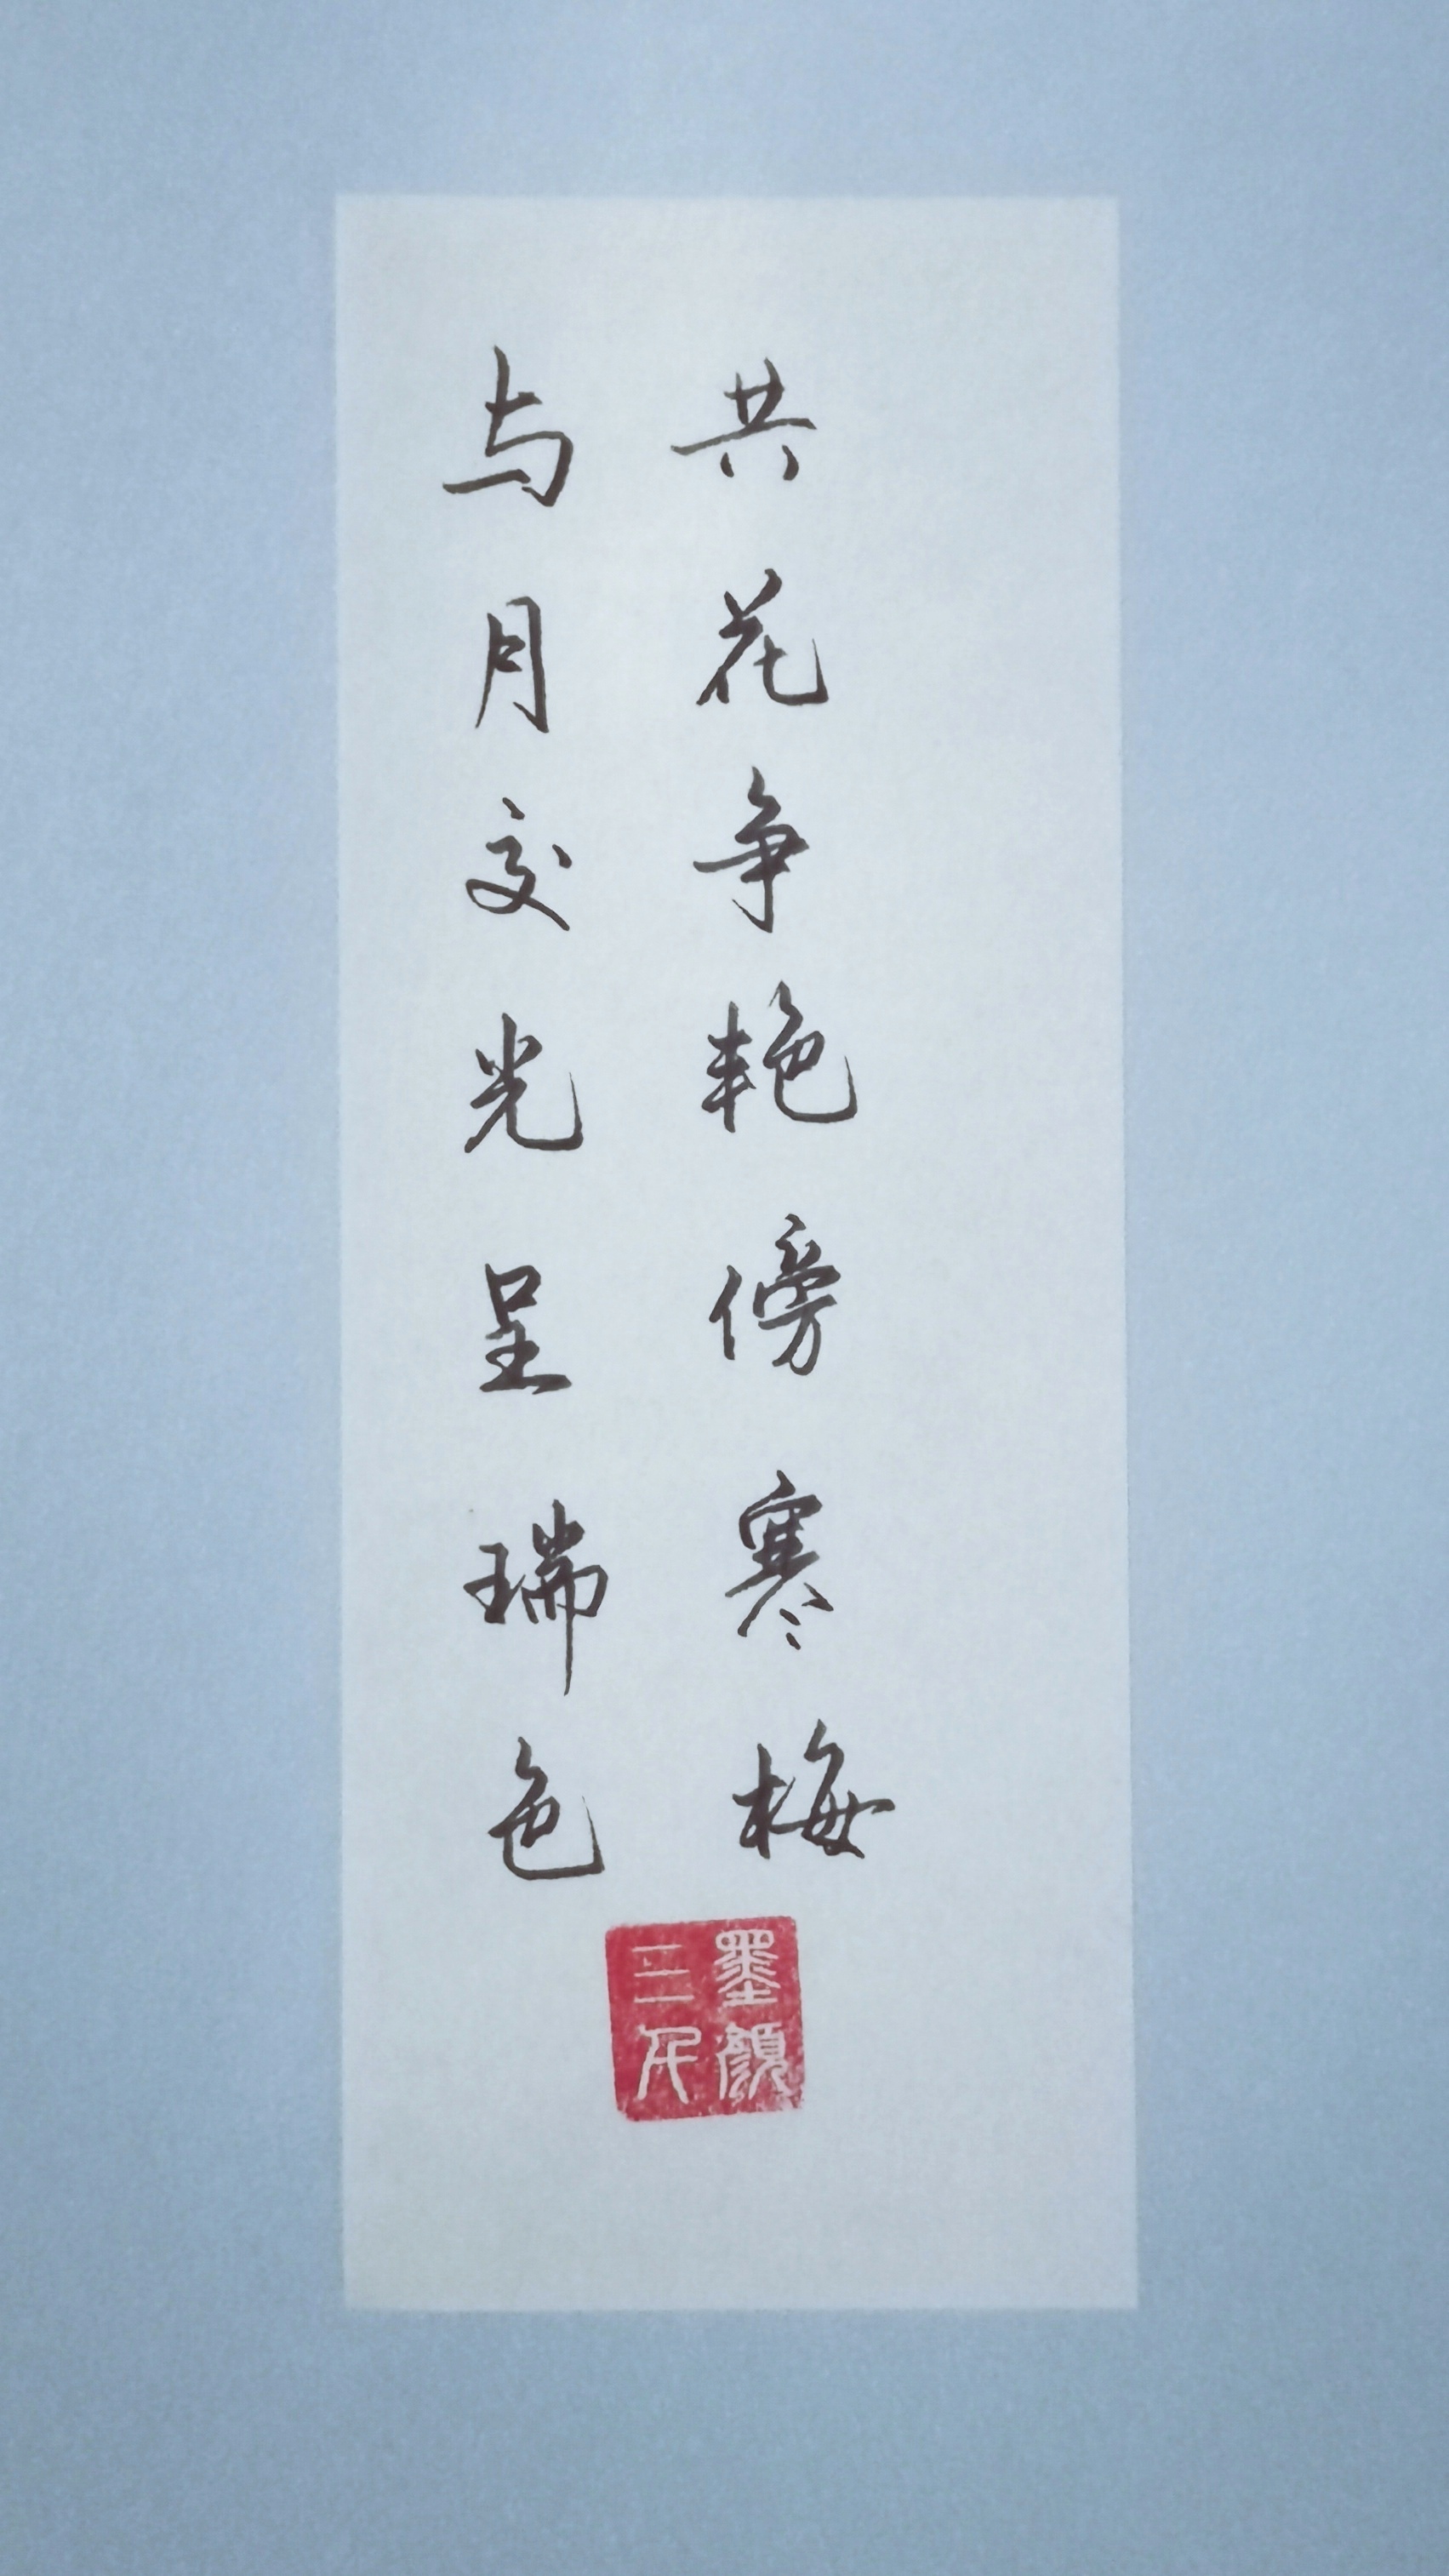 共花争艳傍寒梅
与月交光呈瑞色
墨颜